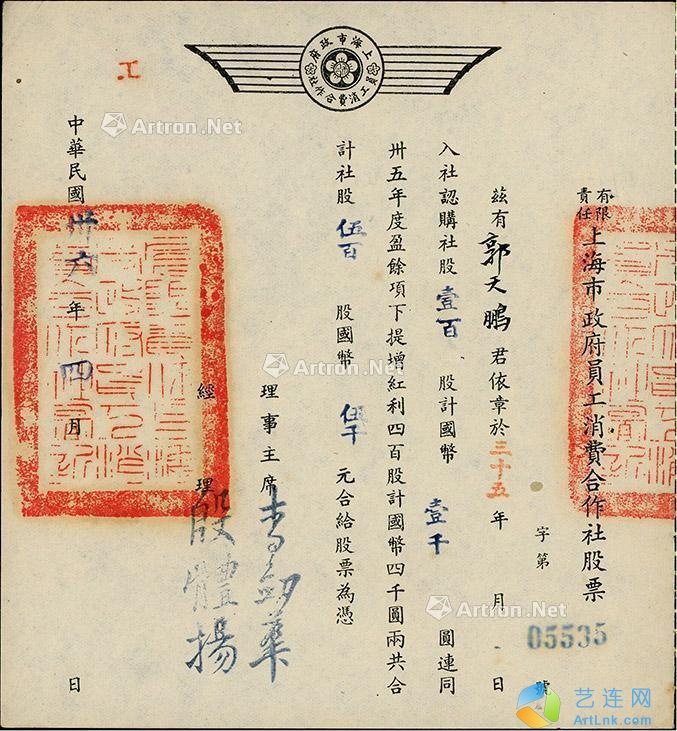 上海市政府
員工消費合作社
工
有限責任上海市政府員工消費合作社股票
字第 05535 號
茲有郭天鵬君依章於三十五年 月 日
入社認購社股壹百股計國幣壹千圓連同
卅五年度盈餘項下提增紅利四百股計國幣四千圓兩共合
計社股伍百股國幣伍千元合給股票為憑
理事主席
經理 殷體揚
中華民國卅六年四月 日
Artron.Net
Artron.Net
Artron.Net
Artron.Net
艺连网
ArtLnk.com